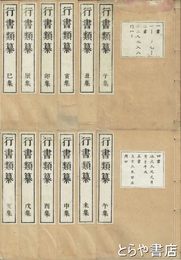 行書類纂 子集
行書類纂 丑集
行書類纂 寅集
行書類纂 卯集
行書類纂 辰集
行書類纂 巳集
行書類纂 午集
行書類纂 未集
行書類纂 申集
行書類纂 酉集
行書類纂 戌集
行書類纂 亥集
とらや書房